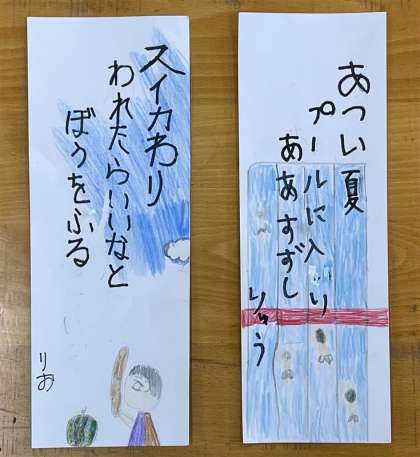 あつい夏
プールに入り
ああすずし
りゅう
スイカわり
われたらいいなと
ぼうをふる
りお